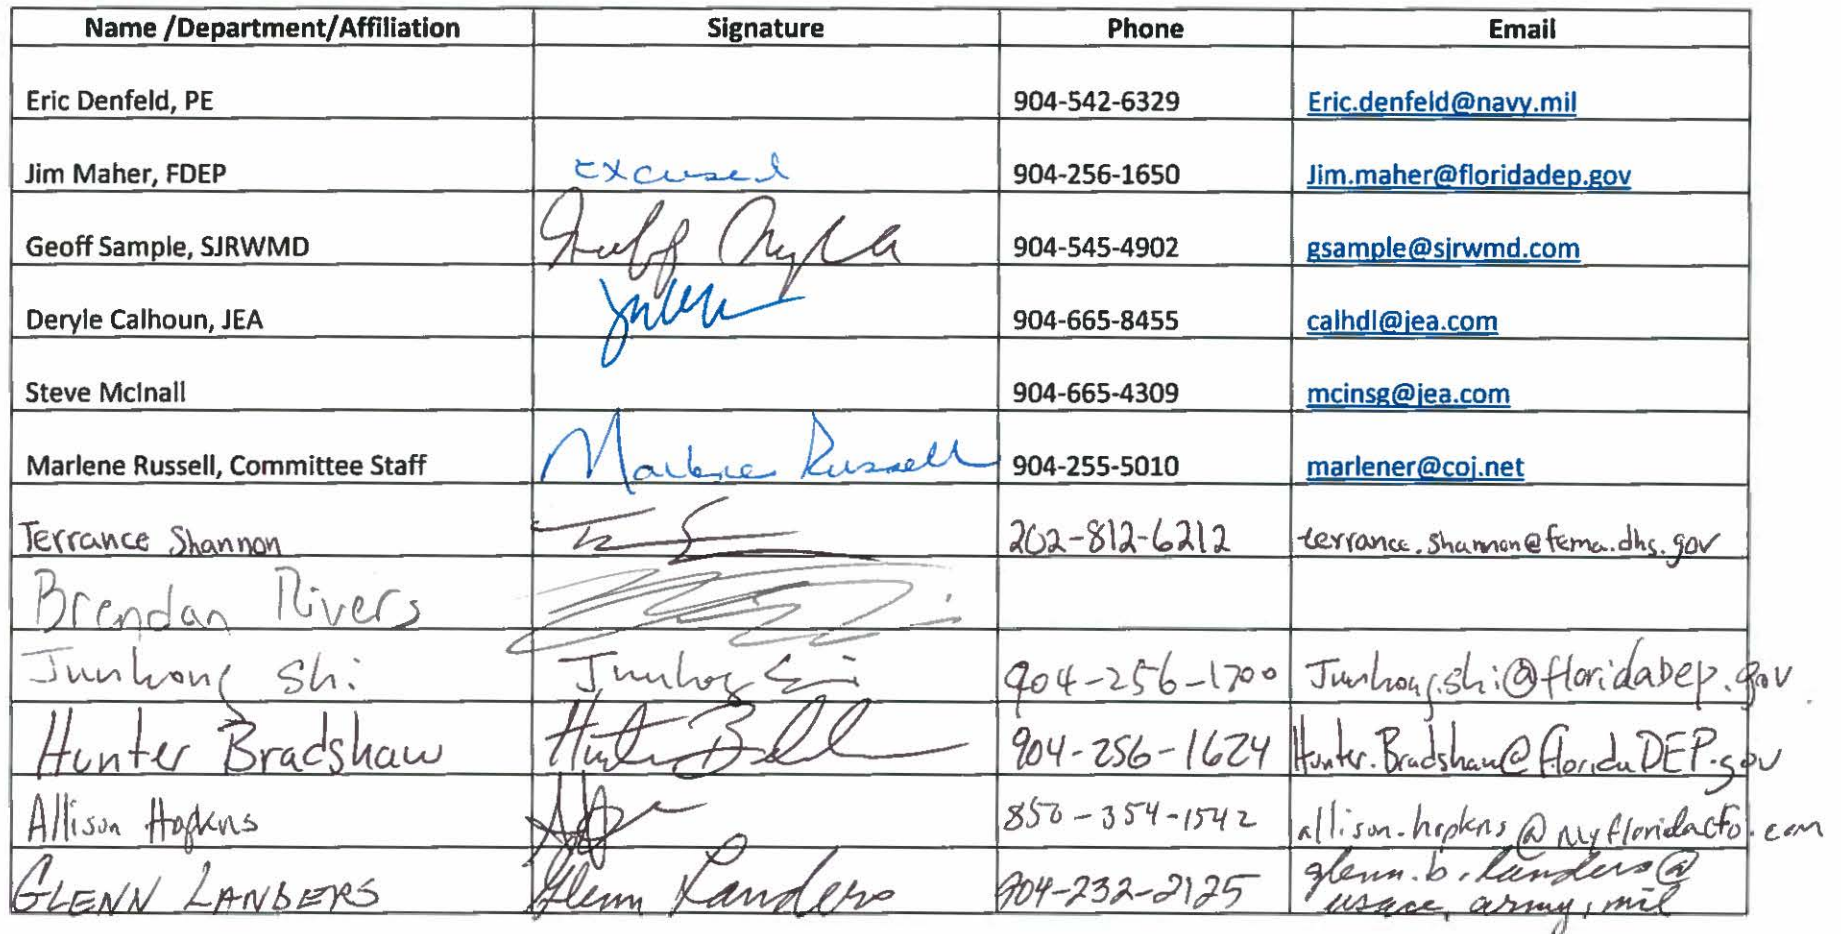 Name /Department/Affiliation Signature Phone Email
Eric Denfeld, PE 904-542-6329 Eric.denfeld@navy.mil
Jim Maher, FDEP excused 904-256-1650 Jim.maher@floridadep.gov
Geoff Sample, SJRWMD 904-545-4902 gsample@sjrwmd.com
Deryle Calhoun, JEA 904-665-8455 calhdl@jea.com
Steve McInall 904-665-4309 mcinsg@jea.com
Marlene Russell, Committee Staff Marlene Russell 904-255-5010 marlener@coj.net
Terrance Shannon 202-812-6212 terrance.shannon@fema.dhs.gov
Brendan Rivers
Junhong Shi Junhong Shi 904-256-1700 Junhong.shi@floridaDep.gov
Hunter Bradshaw 904-256-1624 Hunter.Bradshaw@floridaDEP.gov
Allison Hopkins 850-354-1542 allison.hopkins@myfloridacfo.com
GLENN LANDERS Glenn Landers 904-232-2125 glenn.b.landers@
usace.army.mil